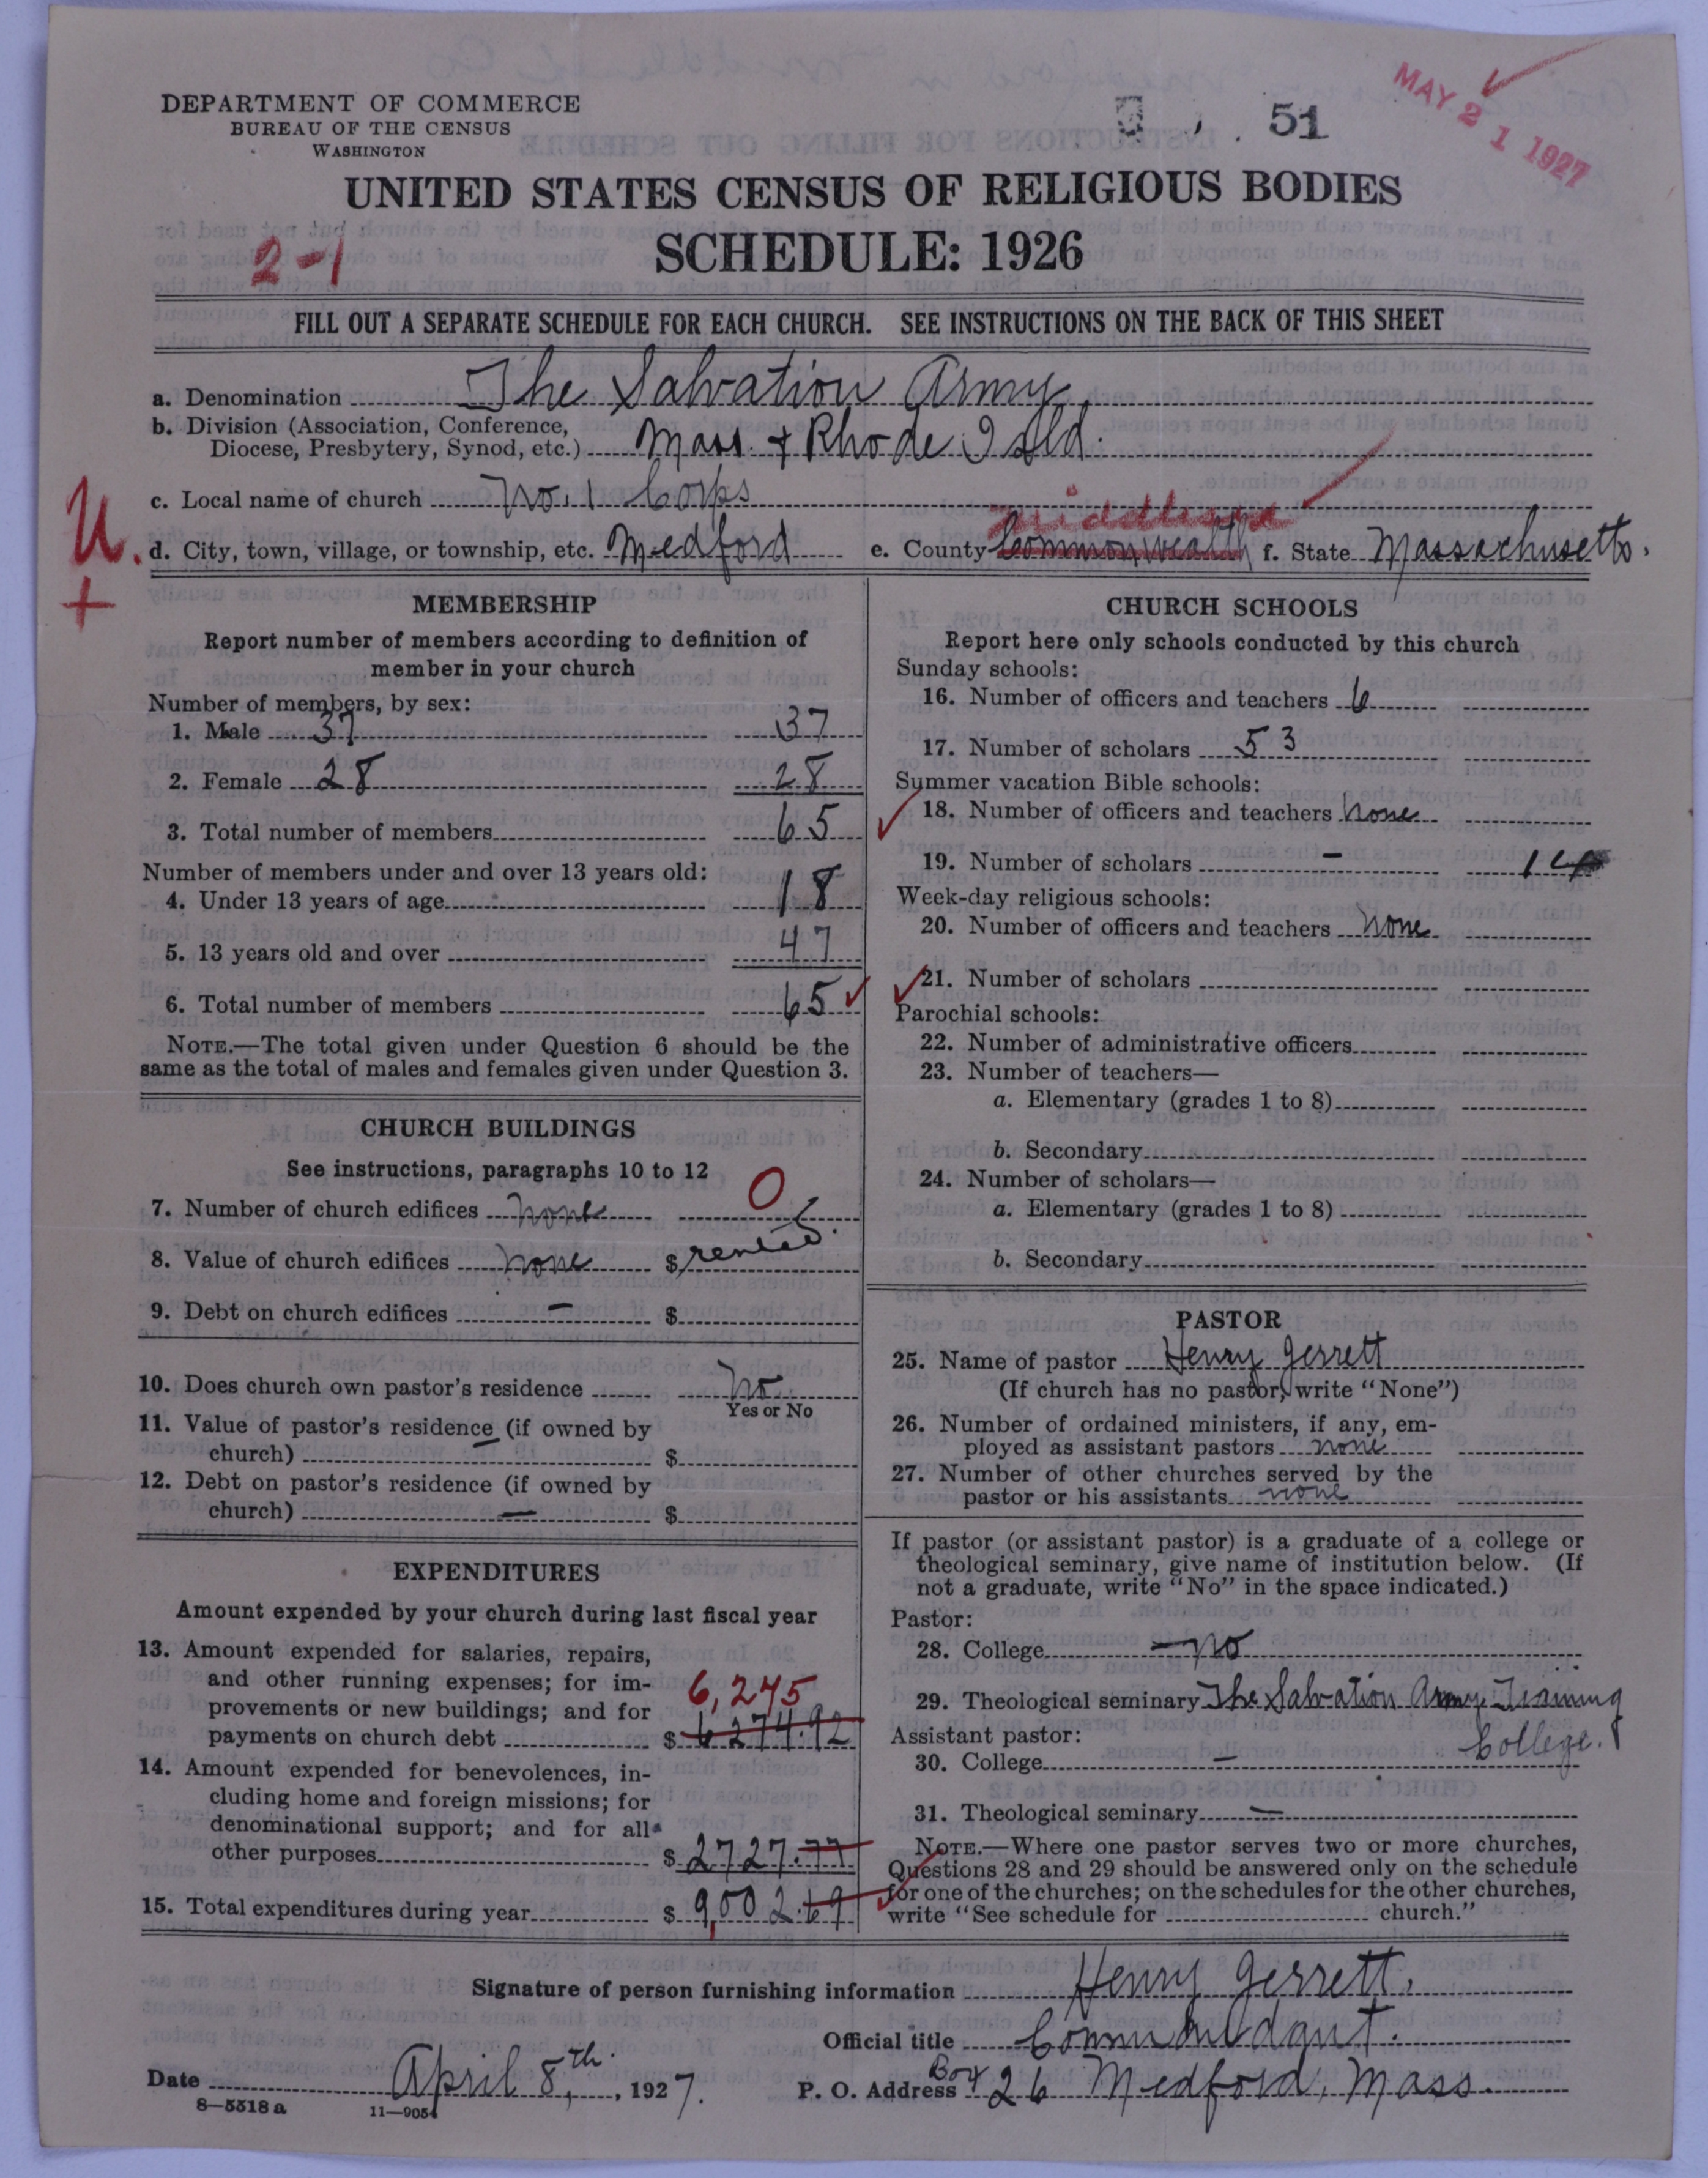 DEPARTMENT OF COMMERCE
BUREAU OF THE CENSUS
WASHINGTON
51
MAY 21 1927
UNITED STATES CENSUS OF RELIGIOUS BODIES
SCHEDULE: 1926
2-1
FILL OUT A SEPARATE SCHEDULE FOR EACH CHURCH. SEE INSTRUCTIONS ON THE BACK OF THIS SHEET
a. Denomination The Salvation Army
b. Division (Association, Conference,
Diocese, Presbytery, Synod, etc.) Mass. + Rhode Isld.
c. Local name of church No. 1 Corps
Middlesex
U. d. City, town, village, or township, etc. Medford e. County Commonwealth f. State Massachusetts.
+
MEMBERSHIP
Report number of members according to definition of
member in your church
Number of members, by sex:
1. Male 37 37
2. Female 28 28
3. Total number of members 65
Number of members under and over 13 years old:
4. Under 13 years of age 18
5. 13 years old and over 47
6. Total number of members 65
NOTE.—The total given under Question 6 should be the
same as the total of males and females given under Question 3.
CHURCH BUILDINGS
See instructions, paragraphs 10 to 12
7. Number of church edifices none 0
8. Value of church edifices none $ rented.
9. Debt on church edifices – $
10. Does church own pastor's residence No
Yes or No
11. Value of pastor's residence (if owned by
church) – $
12. Debt on pastor's residence (if owned by
church) – $
EXPENDITURES
Amount expended by your church during last fiscal year
13. Amount expended for salaries, repairs,
and other running expenses; for im-
provements or new buildings; and for 6,275
payments on church debt $ 6274.92
14. Amount expended for benevolences, in-
cluding home and foreign missions; for
denominational support; and for all
other purposes $ 2727.77
15. Total expenditures during year $ 9,002.69
CHURCH SCHOOLS
Report here only schools conducted by this church
Sunday schools:
16. Number of officers and teachers 6
17. Number of scholars 53
Summer vacation Bible schools:
18. Number of officers and teachers none
19. Number of scholars –
Week-day religious schools:
20. Number of officers and teachers none
21. Number of scholars
Parochial schools:
22. Number of administrative officers
23. Number of teachers—
a. Elementary (grades 1 to 8)
b. Secondary
24. Number of scholars—
a. Elementary (grades 1 to 8)
b. Secondary
PASTOR
25. Name of pastor Henry Jerrett
(If church has no pastor, write "None")
26. Number of ordained ministers, if any, em-
ployed as assistant pastors none
27. Number of other churches served by the
pastor or his assistants none
If pastor (or assistant pastor) is a graduate of a college or
theological seminary, give name of institution below. (If
not a graduate, write "No" in the space indicated.)
Pastor:
28. College – no
29. Theological seminary The Salvation Army Training
College.
Assistant pastor:
30. College –
31. Theological seminary –
NOTE.—Where one pastor serves two or more churches,
Questions 28 and 29 should be answered only on the schedule
for one of the churches; on the schedules for the other churches,
write "See schedule for church."
Signature of person furnishing information Henry Jerrett.
Official title Commandant.
Date April 8th, 1927. P. O. Address Box 26 Medford, Mass.
8—5518 a 11—9054